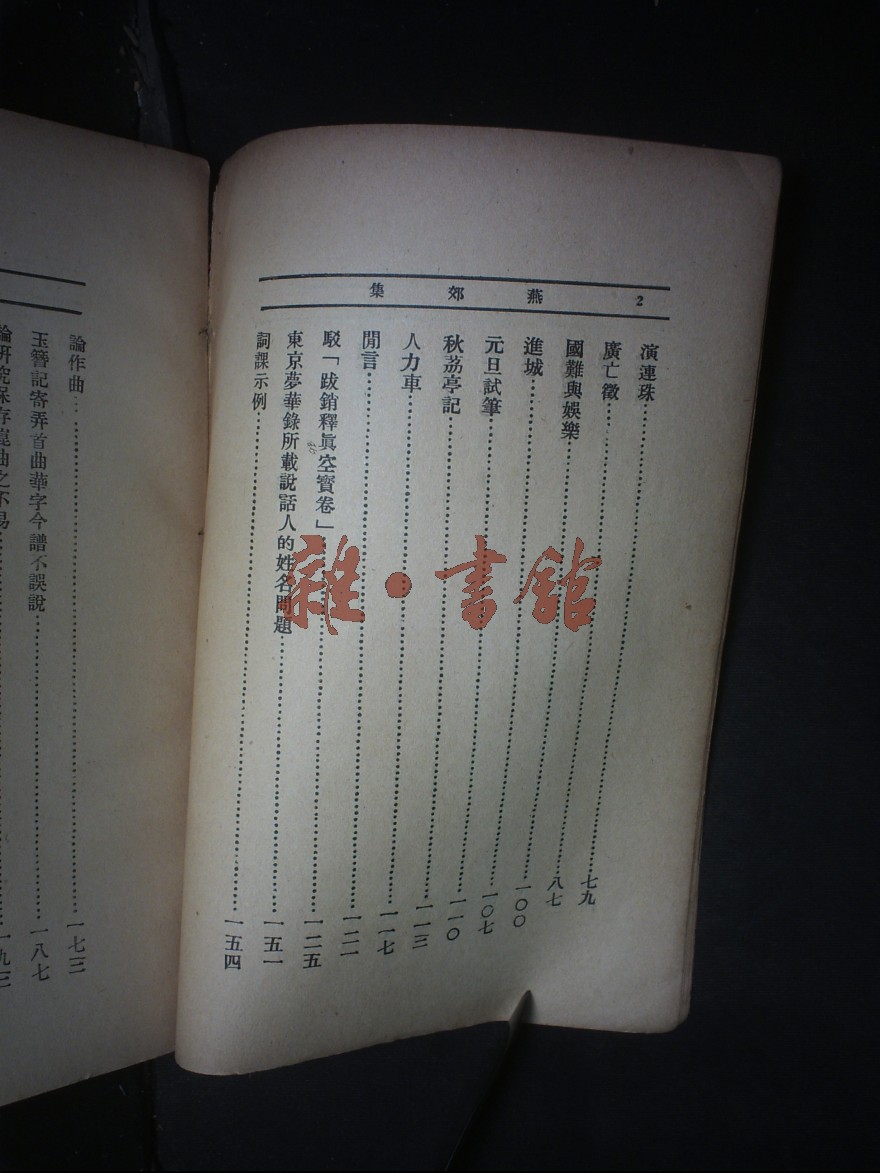 2 燕郊集
演連珠……七九
廣亡徵……八七
國難與娛樂……一〇〇
進城……一〇七
元旦試筆……一一〇
秋荔亭記……一一三
人力車……一一七
閒言……一二一
駁「跋銷釋眞空寶卷」……一二五
東京夢華錄所載說話人的姓名問題……一五一
詞課示例……一五四
論作曲……一七三
玉簪記寄弄首曲華字今譜不誤說……一八七
論研究保存崑曲之不易……一九三
雜·書館